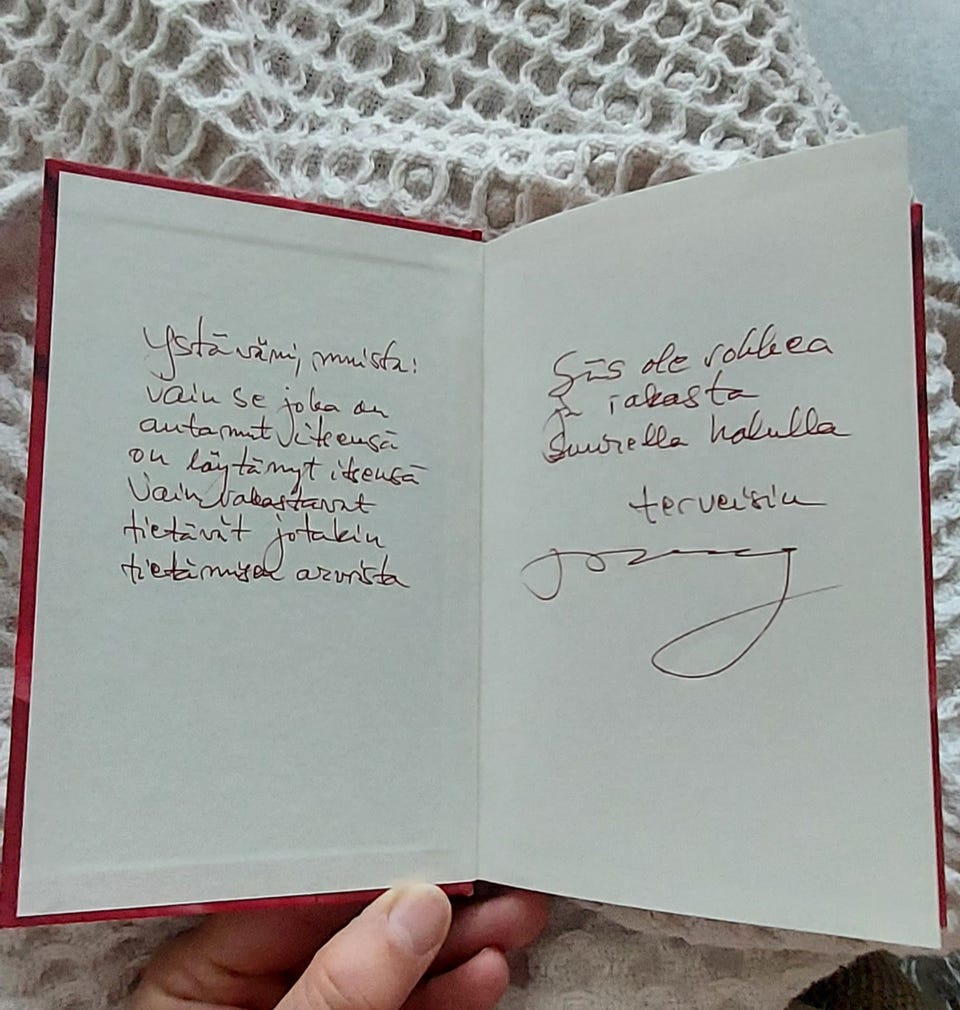 Ystäväni, muista:
vain se joka on
antanut itsensä
on löytänyt itsensä
Vain rakastavat
tietävät jotakin
tietämisen arvosta
Siis ole rohkea
ja rakasta
suurella halulla
terveisin